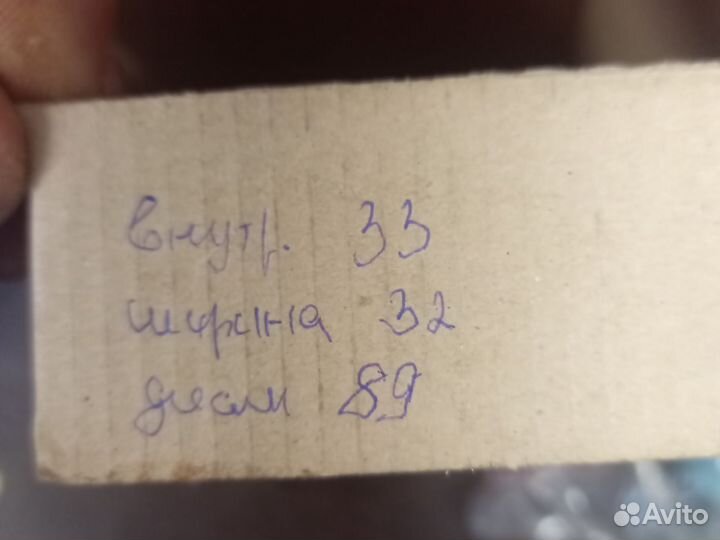 внутр. 33
ширина 32
диам 89
Avito